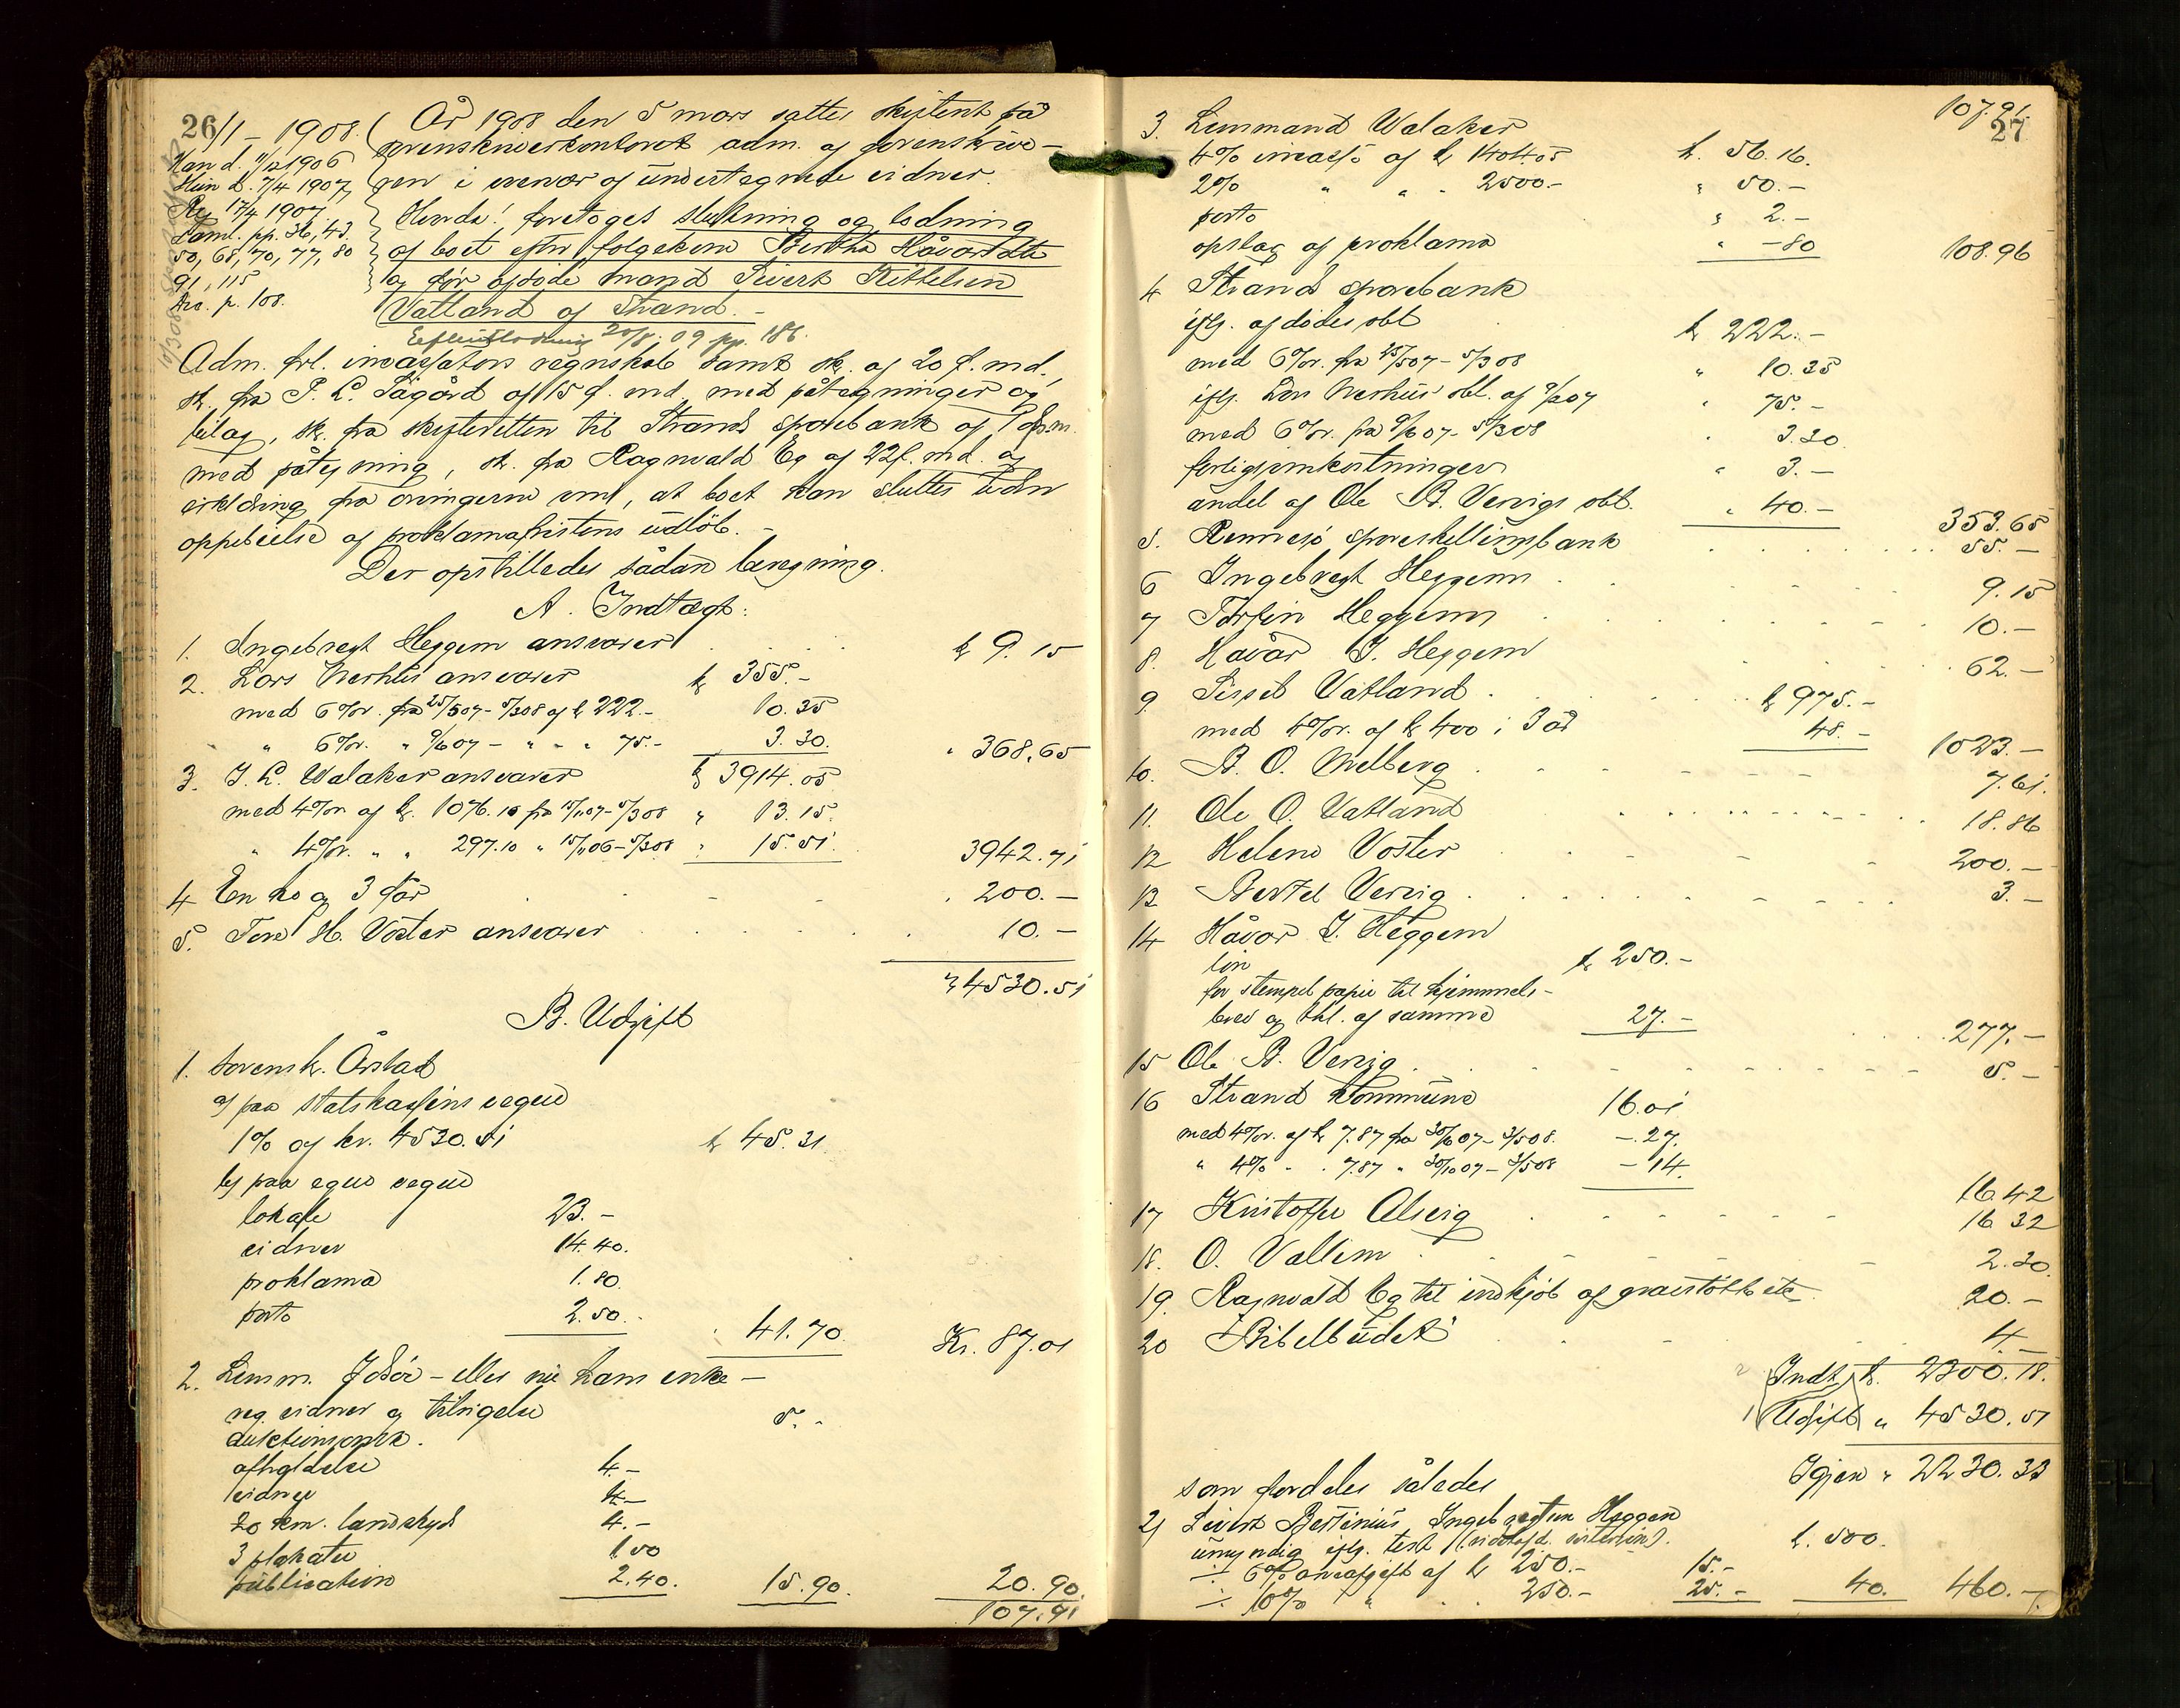 26/1 - 1908.
Han d. 11/12 1906
Hun d. 7/4 1907
Reg 17/4 1907.
Saml. pp. 36, 43
50, 68, 70, 77, 80
91, 115
p. 108.
År 1908 den 5 mars sattes skifteret på
sorenskriverkontoret adm. af sorenskrive-
ren i nærvær af undertegnede vidner.
Hvorda! foretoges slutning og lodning
af boet efter folgekone Bertha Håvarsdtr
og før afdøde mand Sivert Kittelsen
Vatland af Strand. -
Efterudlodning 20/8. 09 pp. 186.
Adm. frl. incassators regnskab samt sk. af 20 f. md.,
sk. fra P. L. Sågård af 15 f. md. med påtegninger og
bilag, sk. fra skifteretten til Strand sparebank af 1 ds. m.
med påtegning, sk. fra Ragnvald Eg af 22 f. md. og
erklæring fra arvingerne om, at boet kan sluttes uden
oppebielse af proklamafristens udløb. -
Der opstilledes sådan beregning.
A. Indtægt:
1. Ingebregt Heggem ansvarer . . . . k 9. 15
2. Lars Nerhus ansvarer k 355. -
med 6% r. fra 25/5 07 - 5/3 08 af k 222. - 10.35
" 6% r. " 9/6 07 - " - " - " 75. - 3.30. " 368.65
3. J. L. Walaker ansvarer k 3914.05
med 4% r. af k. 1076.10 fra 15/11 07 - 5/3 08 " 13.15.
" 4% r. " " 297.10 " 15/11 06 - 5/3 08 " 15.51. 3942.71
4 En ko og 3 får . - - . 200. -
5. Tore H. Voster ansvarer . . . . . 10. -
k 4530.51
B. Udgift
1. Sorensk. Årstad
a) paa statskassens vegne
1% af kr. 4530.51 k 45.31
b) paa egne vegne
lokale 23. -
vidner 14.40.
proklama 1.80
porto 2.50. . 41.70 Kr. 87.01
2. Lensm. Idsöe - elles nu hans enke -
reg. vidner og tilsigelse 5. -
auktionsomk.
afholdelse 4. -
vidner 4. -
20 km. landskyds 4. -
3 plakater 1.50
publication 2.40. 15.90. 20.90
107.91
27
107.91.
3. Lensmand Walaker
4% incasso af k 1404.05 k. 56.16.
2% " " " 2500. - " 50. -
porto " 2. -
opslag af proklama " - 80 108.96
4 Strand sparebank
iflg. afdødes obl. k 222. -
med 6% r. fra 25/5 07 - 5/3 08 " 10.35
iflg. Lars Nerhus' obl. af 9/2 07 " 75. -
med 6% r. fra 9/6 07 - 5/3 08 " 3.30
forligsomkostninger " 3. -
andel af Ole B. Vervigs obl. " 40. - 353.65
5. Rennesö spareskillingsbank . . . . . . . 55. -
6 Ingebregt Heggem . . . . . . 9.15
7 Torfin Heggem . . . . . . . 10. -
8. Håvar J. Heggem . . . . 62. -
9. Sissel Vatland . . . . k 975. -
med 4% r. af k 400 i 3 år 48. - 1023. -
10. B. O. Melberg . . . . . . 7.61.
11. Ole O. Vatland . . . . . . . . 18.86
12 Helene Voster . . . . 200. -
13 Bertel Vervig . . . . . . . . 3. -
14 Håvar J. Heggem
lön k 250. -
for stempelpapir til hjemmels-
brev og thl. af samme 27. - . . . 277. -
15 Ole B. Vervig . . . . . . . . . 5. -
16 Strand kommune 16.01
med 4% r. af k 7.87 fra 30/6 07 - 3/5 08. -. 27.
" 4% - . 7.87 " 30/10 07 - 3/5 08 - 14. 16.42
17 Kristoffer Alsvig . . . . . . 16 32
18. O. Vallem . . . . . . . 2.30.
19. Ragnvald Eg til indkjöb af gravstötte etc. 20. -
20 "Bibelbudet" . . . . . 4. -
2 (Indt.) k. 2300.18.
1 (Udgift) " 4530.51
Igjen " 2230.33
som fordeles således
2) Sivert Bertinius Ingebregtsen Heggem
umyndig iflg. test. k. 500.
÷ 6% arveafgift af k 250. - 15. -
÷ 10% " . . 250. - 25. - 40. 460. -